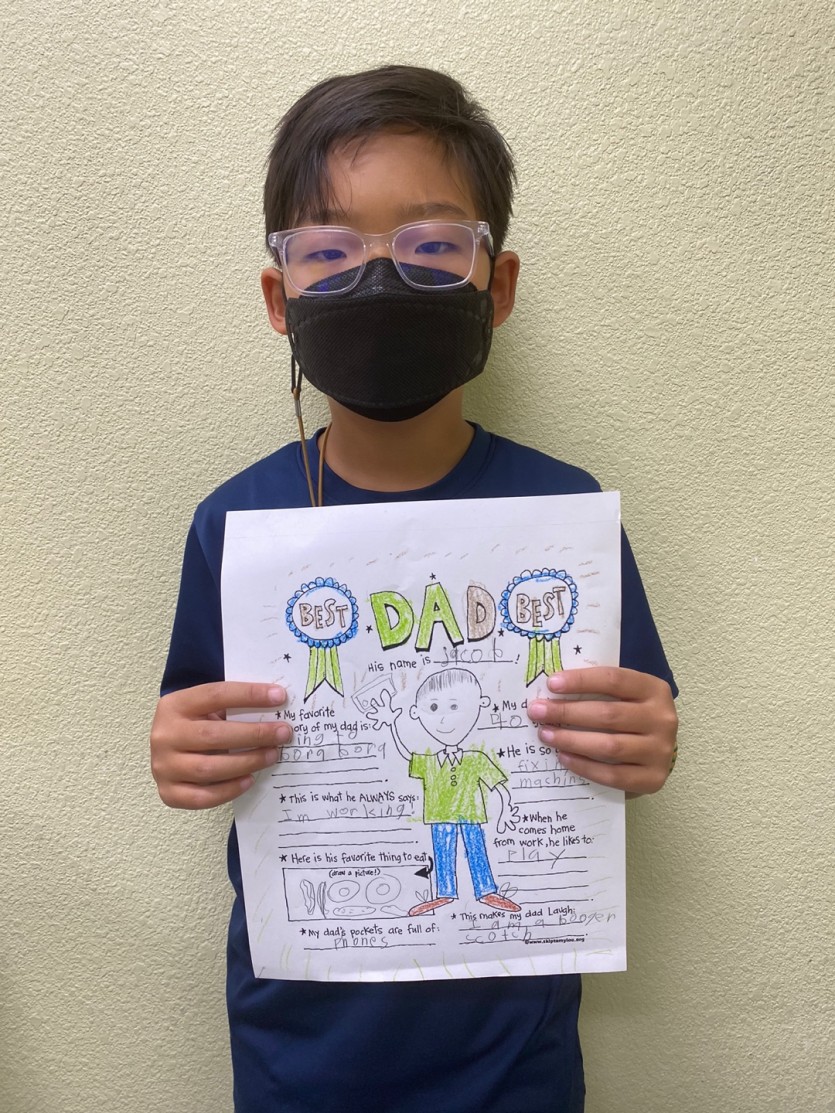 BEST
DAD
BEST
His name is jacob!
★My favorite
ory of my dad is:
ing to
bora bora
★This is what he ALWAYS says:
Im working!
★ Here is his favorite thing to eat
(draw a picture!)
★My dad's pockets are full of:
phones
★My d
40
★He is so
fixin
machins.
★When he
comes home
from work, he likes to:
play
★This makes my dad Laugh:
I am a booger
scotch
©www.skiptomylou.org